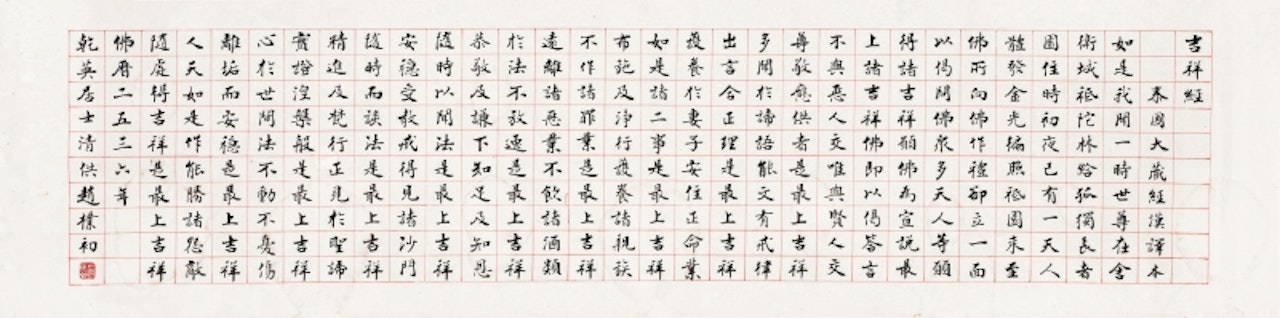 吉祥經
泰國大藏經漢譯本
如是我聞一時世尊在舍
衛城祗陀林給孤獨長者
園住時初夜已有一天人
體發金光徧照祗園來至
佛所向佛作禮卻立一面
以偈問佛眾多天人等願
得諸吉祥願佛為宣說最
上諸吉祥佛即以偈答言
不與惡人交唯與賢人交
尊敬應供者是最上吉祥
多聞於諦語能文有戒律
出言合正理是最上吉祥
護養於妻子安住正命業
如是諸二事是最上吉祥
布施及淨行護養諸親族
不作諸罪業是最上吉祥
遠離諸惡業不飲諸酒類
於法不放逸是最上吉祥
恭敬及謙下知足及知恩
隨時以聞法是最上吉祥
安穩受教戒得見諸沙門
隨時而談法是最上吉祥
精進及梵行正見於聖諦
實證涅槃般是最上吉祥
心於世間法不動不憂傷
離垢而安穩是最上吉祥
人天如是作能勝諸怨敵
隨處得吉祥是最上吉祥
佛曆二五三六年
乾英居士清供趙樸初